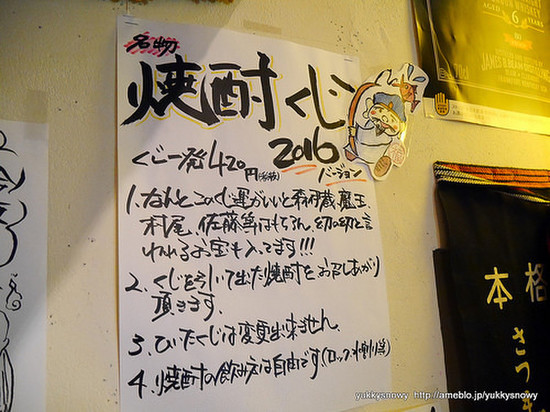 名物
焼酎くじ
2016
バージョン
くじ一発420円(税抜)
1.なんとこのくじ運がいいと森伊蔵、魔王、
村尾、佐藤等はもちろん、幻の幻と言
われるお宝も入ってます!!!
2.くじを引いて出た焼酎をお召しあがり
頂きます。
3.ひいたくじは変更出来ません。
4.焼酎の飲み方は自由です(ロック・水割り等)
AGED
6
YEARS
70cl
JAMES B. BEAM DISTILLING
本格
さつま
yukkysnowy http://ameblo.jp/yukkysnowy